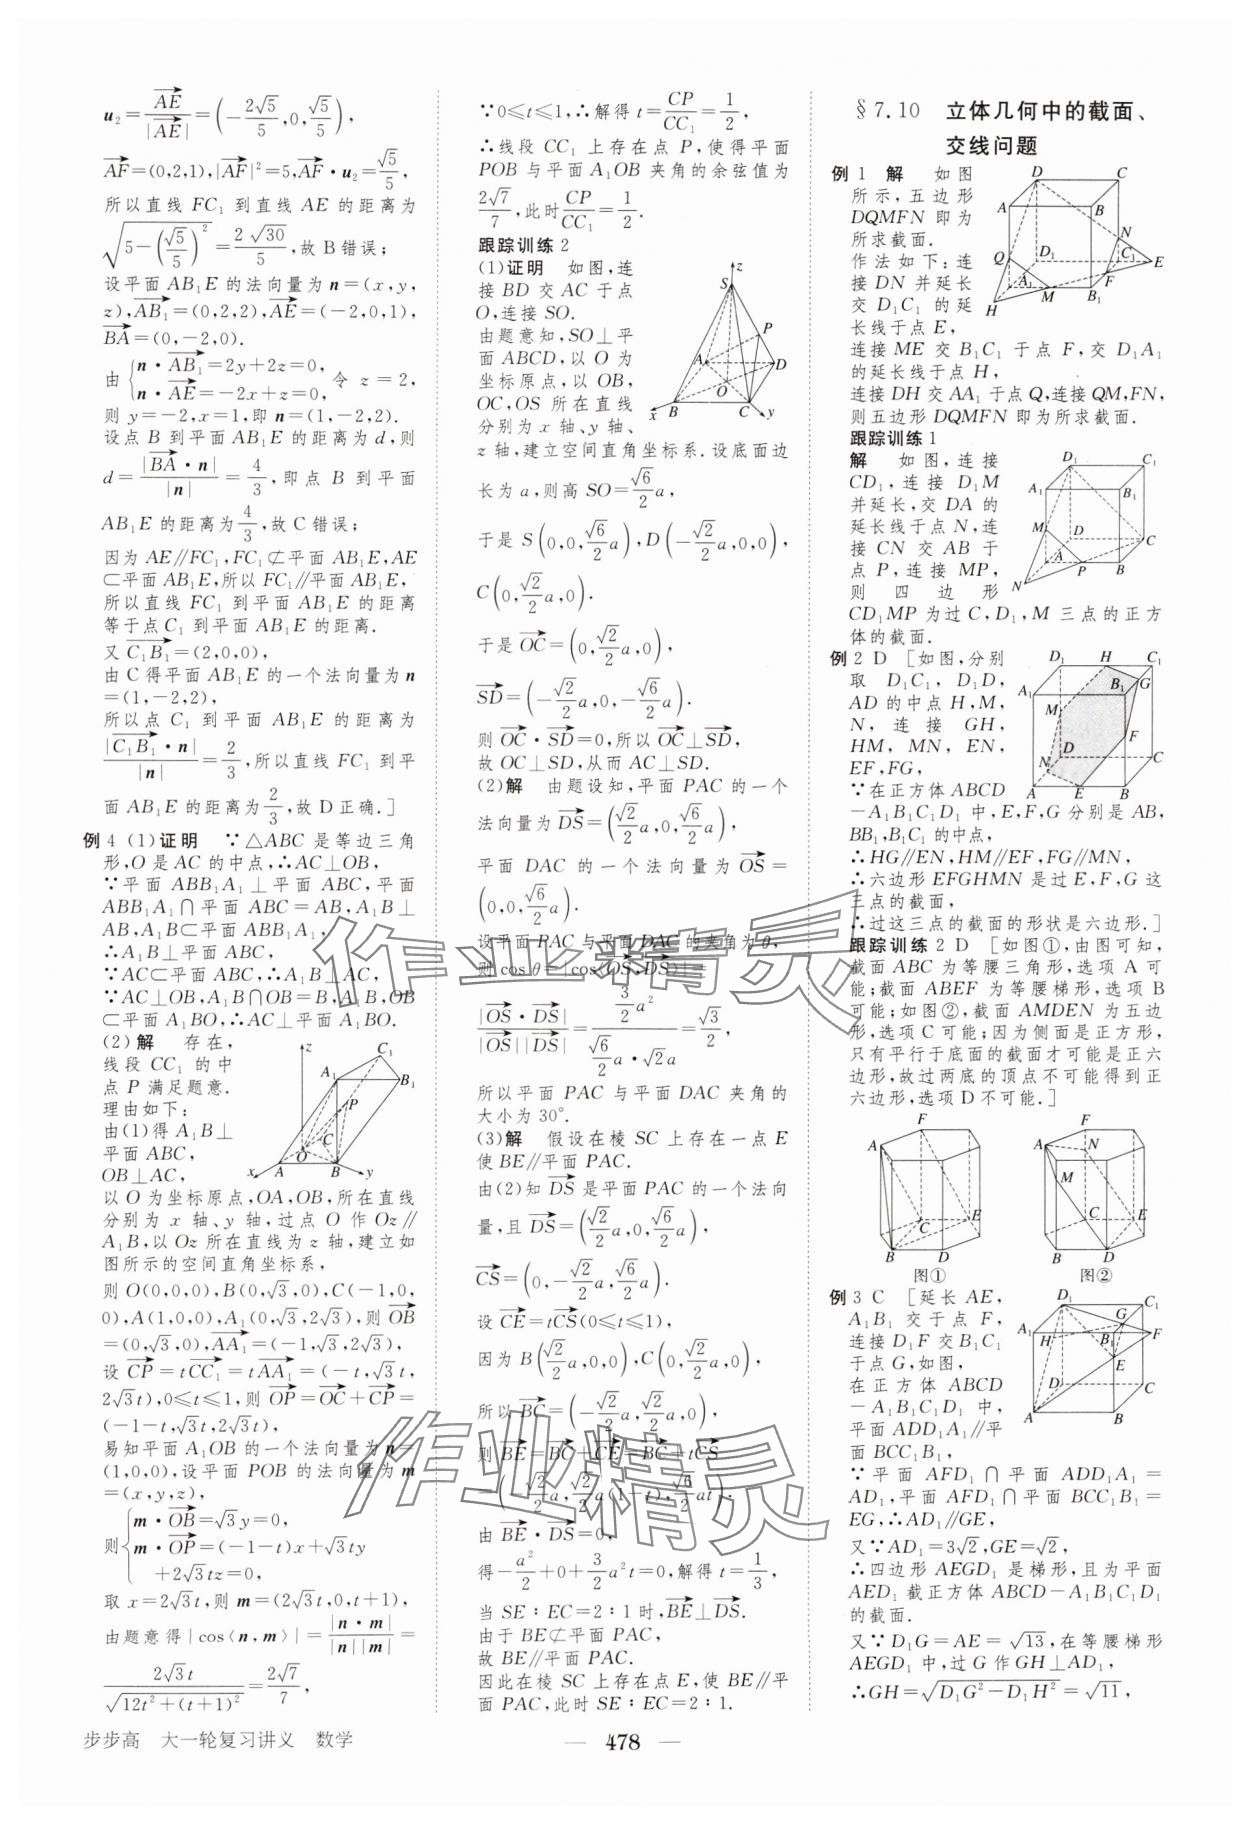 u₂=AE/|AE|=(-2√5/5,0,√5/5),
AF=(0,2,1),|AF|²=5,AF·u₂=√5/5,
所以直线 FC₁ 到直线 AE 的距离为
√(5-(√5/5)²)=2√30/5,故 B 错误;
设平面 AB₁E 的法向量为 n=(x,y,
z),AB₁=(0,2,2),AE=(-2,0,1),
BA=(0,-2,0).
由{n·AB₁=2y+2z=0,
n·AE=-2x+z=0, 令 z=2,
则 y=-2,x=1,即 n=(1,-2,2).
设点 B 到平面 AB₁E 的距离为 d,则
d=|BA·n|/|n|=4/3,即点 B 到平面
AB₁E 的距离为4/3,故 C 错误;
因为 AE∥FC₁,FC₁⊄平面 AB₁E,AE
⊂平面 AB₁E,所以 FC₁∥平面 AB₁E,
所以直线 FC₁ 到平面 AB₁E 的距离
等于点 C₁ 到平面 AB₁E 的距离.
又 C₁B₁=(2,0,0),
由 C 得平面 AB₁E 的一个法向量为 n
=(1,-2,2),
所以点 C₁ 到平面 AB₁E 的距离为
|C₁B₁·n|/|n|=2/3,所以直线 FC₁ 到平
面 AB₁E 的距离为2/3,故 D 正确.]
例 4 (1)证明 ∵△ABC 是等边三角
形,O 是 AC 的中点,∴AC⊥OB,
∵平面 ABB₁A₁⊥平面 ABC,平面
ABB₁A₁∩平面 ABC=AB,A₁B⊥
AB,A₁B⊂平面 ABB₁A₁,
∴A₁B⊥平面 ABC,
∵AC⊂平面 ABC,∴A₁B⊥AC,
∵AC⊥OB,A₁B∩OB=B,A₁B,OB
⊂平面 A₁BO,∴AC⊥平面 A₁BO.
(2)解 存在,
线段 CC₁ 的中
点 P 满足题意.
理由如下:
由(1)得 A₁B⊥
平面 ABC,
OB⊥AC,
以 O 为坐标原点,OA,OB,所在直线
分别为 x 轴、y 轴,过点 O 作 Oz∥
A₁B,以 Oz 所在直线为 z 轴,建立如
图所示的空间直角坐标系,
则 O(0,0,0),B(0,√3,0),C(-1,0,
0),A(1,0,0),A₁(0,√3,2√3),则 OB
=(0,√3,0),AA₁=(-1,√3,2√3),
设 CP=tCC₁=tAA₁=(-t,√3t,
2√3t),0≤t≤1,则 OP=OC+CP=
(-1-t,√3t,2√3t),
易知平面 A₁OB 的一个法向量为 n=
(1,0,0),设平面 POB 的法向量为 m
=(x,y,z),
则{m·OB=√3y=0,
m·OP=(-1-t)x+√3ty
+2√3tz=0,
取 x=2√3t,则 m=(2√3t,0,t+1),
由题意得|cos⟨n,m⟩|=|n·m|/|n||m|=
2√3t/√(12t²+(t+1)²)=2√7/7,
∵0≤t≤1,∴解得 t=CP/CC₁=1/2,
∴线段 CC₁ 上存在点 P,使得平面
POB 与平面 A₁OB 夹角的余弦值为
2√7/7,此时CP/CC₁=1/2.
跟踪训练 2
(1)证明 如图,连
接 BD 交 AC 于点
O,连接 SO.
由题意知,SO⊥平
面 ABCD,以 O 为
坐标原点,以 OB,
OC,OS 所在直线
分别为 x 轴、y 轴、
z 轴,建立空间直角坐标系.设底面边
长为 a,则高 SO=√6/2a,
于是 S(0,0,√6/2a),D(-√2/2a,0,0),
C(0,√2/2a,0).
于是 OC=(0,√2/2a,0),
SD=(-√2/2a,0,-√6/2a).
则 OC·SD=0,所以 OC⊥SD,
故 OC⊥SD,从而 AC⊥SD.
(2)解 由题设知,平面 PAC 的一个
法向量为 DS=(√2/2a,0,√6/2a),
平面 DAC 的一个法向量为 OS=
(0,0,√6/2a).
设平面 PAC 与平面 DAC 的夹角为 θ,
则 cos θ=|cos⟨OS,DS⟩|=
|OS·DS|/|OS||DS|=(3/2a²)/(√6/2a·√2a)=√3/2,
所以平面 PAC 与平面 DAC 夹角的
大小为 30°.
(3)解 假设在棱 SC 上存在一点 E
使 BE∥平面 PAC.
由(2)知 DS 是平面 PAC 的一个法向
量,且 DS=(√2/2a,0,√6/2a),
CS=(0,-√2/2a,√6/2a).
设 CE=tCS(0≤t≤1),
因为 B(√2/2a,0,0),C(0,√2/2a,0),
所以 BC=(-√2/2a,√2/2a,0),
则 BE=BC+CE=BC+tCS
=(-√2/2a,√2/2a(1-t),√6/2at).
由 BE·DS=0,
得-a²/2+0+3/2a²t=0,解得 t=1/3,
当 SE∶EC=2∶1 时,BE⊥DS.
由于 BE⊄平面 PAC,
故 BE∥平面 PAC.
因此在棱 SC 上存在点 E,使 BE∥平
面 PAC,此时 SE∶EC=2∶1.
§7.10 立体几何中的截面、
交线问题
例 1 解 如图
所示,五边形
DQMFN 即为
所求截面.
作法如下:连
接 DN 并延长
交 D₁C₁ 的延
长线于点 E,
连接 ME 交 B₁C₁ 于点 F,交 D₁A₁
的延长线于点 H,
连接 DH 交 AA₁ 于点 Q,连接 QM,FN,
则五边形 DQMFN 即为所求截面.
跟踪训练 1
解 如图,连接
CD₁,连接 D₁M
并延长,交 DA 的
延长线于点 N,连
接 CN 交 AB 于
点 P,连接 MP,
则四边形
CD₁MP 为过 C,D₁,M 三点的正方
体的截面.
例 2 D [如图,分别
取 D₁C₁,D₁D,
AD 的中点 H,M,
N,连接 GH,
HM,MN,EN,
EF,FG,
∵在正方体 ABCD
-A₁B₁C₁D₁ 中,E,F,G 分别是 AB,
BB₁,B₁C₁ 的中点,
∴HG∥EN,HM∥EF,FG∥MN,
∴六边形 EFGHMN 是过 E,F,G 这
三点的截面,
∴过这三点的截面的形状是六边形.]
跟踪训练 2 D [如图①,由图可知,
截面 ABC 为等腰三角形,选项 A 可
能;截面 ABEF 为等腰梯形,选项 B
可能;如图②,截面 AMDEN 为五边
形,选项 C 可能;因为侧面是正方形,
只有平行于底面的截面才可能是正六
边形,故过两底的顶点不可能得到正
六边形,选项 D 不可能.]
图①
图②
例 3 C [延长 AE,
A₁B₁ 交于点 F,
连接 D₁F 交 B₁C₁
于点 G,如图,
在正方体 ABCD
-A₁B₁C₁D₁ 中,
平面 ADD₁A₁∥平
面 BCC₁B₁,
∵平面 AFD₁∩平面 ADD₁A₁=
AD₁,平面 AFD₁∩平面 BCC₁B₁=
EG,∴AD₁∥GE,
又∵AD₁=3√2,GE=√2,
∴四边形 AEGD₁ 是梯形,且为平面
AED₁ 截正方体 ABCD-A₁B₁C₁D₁
的截面.
又∵D₁G=AE=√13,在等腰梯形
AEGD₁ 中,过 G 作 GH⊥AD₁,
∴GH=√(D₁G²-D₁H²)=√11,
步步高 大一轮复习讲义 数学
478
作业精灵
作业精灵